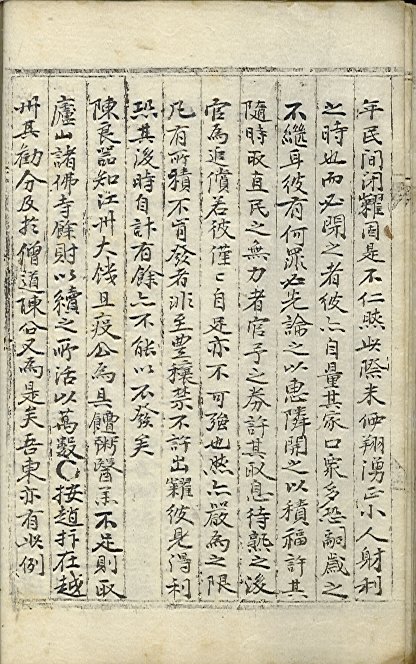 年民間閉糴固是不仁然此際米価翔湧正小人射利
之時也而必閉之者彼亦自量其家口衆多恐嗣歲之
不継耳彼有何罪必先論之以恵隣開之以積福許其
随時取直民之無力者官予之券許其取息待熟之後
官為追償若彼僅〻自足亦不可強也然亦嚴為之限
凡有所積不肯發者非至豊穰禁不許出糴彼見得利
恐其後時自計有餘亦不能以不發矣
陳良器知江州大饑且疫公為具饘粥醫薬不足則取
廬山諸佛寺餘財以續之所活以萬數○按趙抃在越
州其勸分及於僧道陳公又為是矣吾東亦有此例